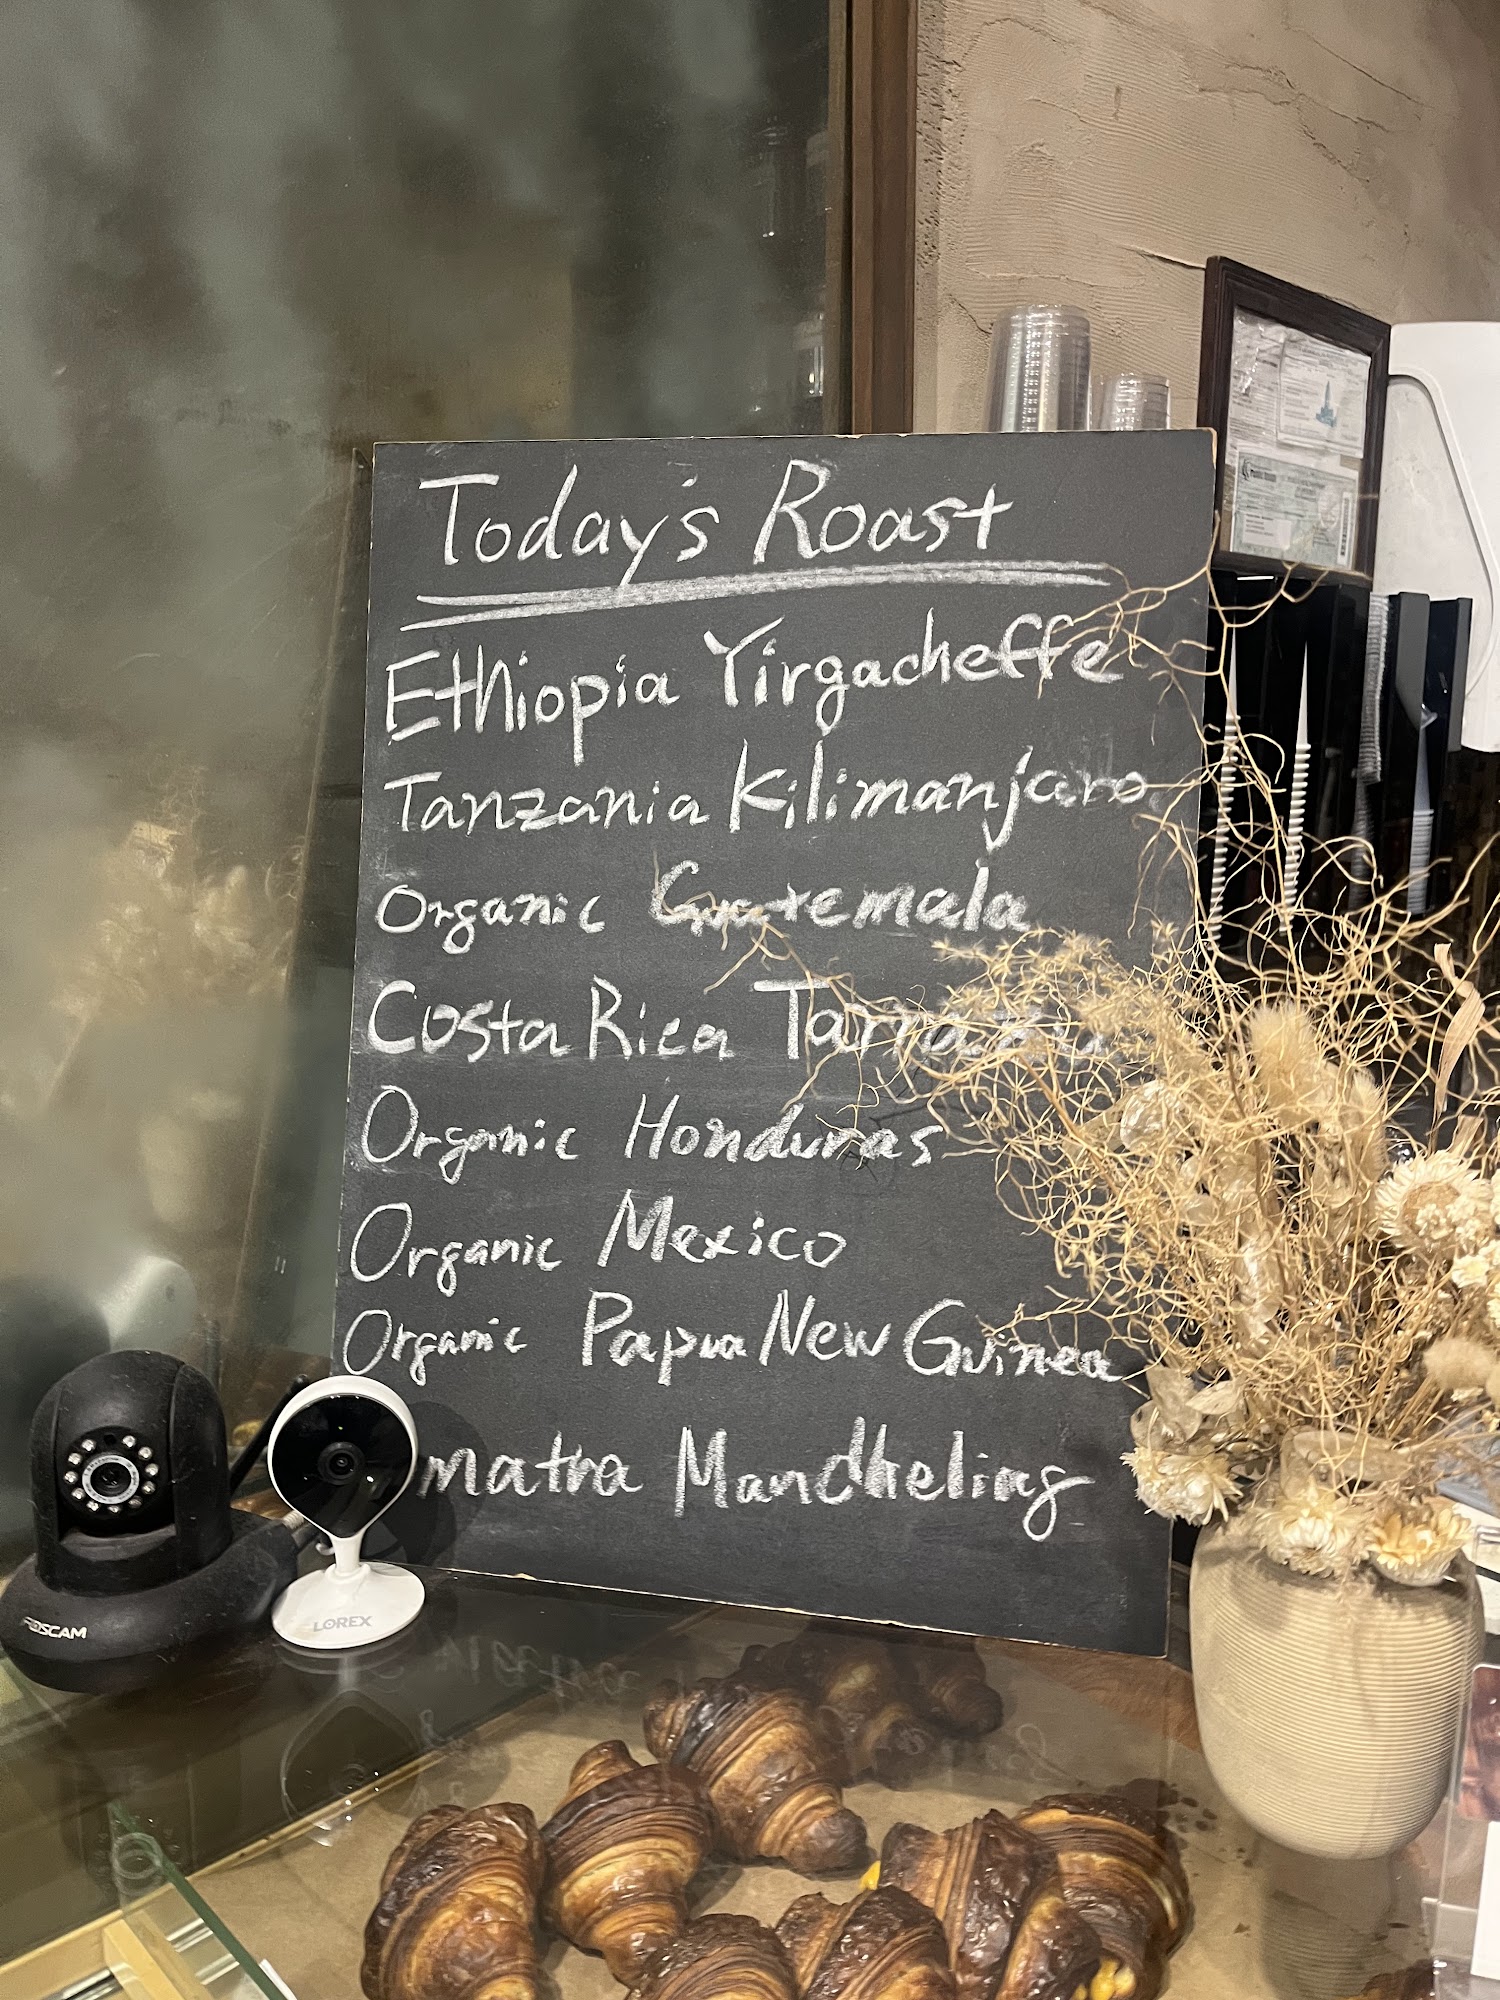 Today's Roast
Ethiopia Yirgacheffe
Tanzania Kilimanjaro
Organic Guatemala
Costa Rica Tarrazu
Organic Honduras
Organic Mexico
Organic Papua New Guinea
matra Mandheling
FOSCAM
LOREX